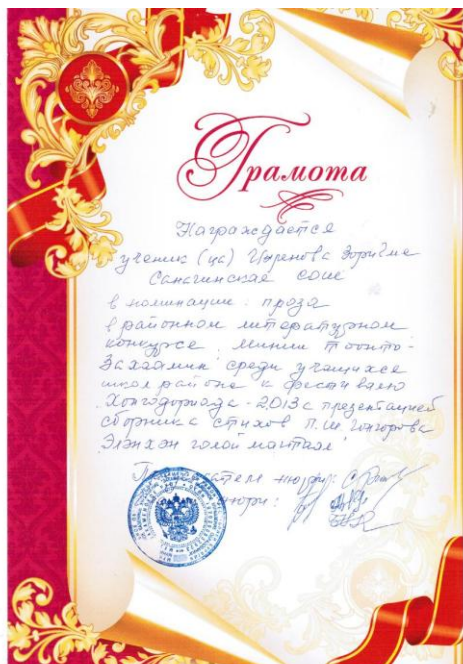 Грамота
Награждается
ученик (ца) Цыренова Зоригма
Санагинская СОШ
в номинации: проза
в районном литературном
конкурсе "Минии тоонто-
Захаамин" среди учащихся
школ района к фестивалю
"Хонгодориада-2013" с презентацией
сборника стихов
магтаал"
жюри:
жюри: